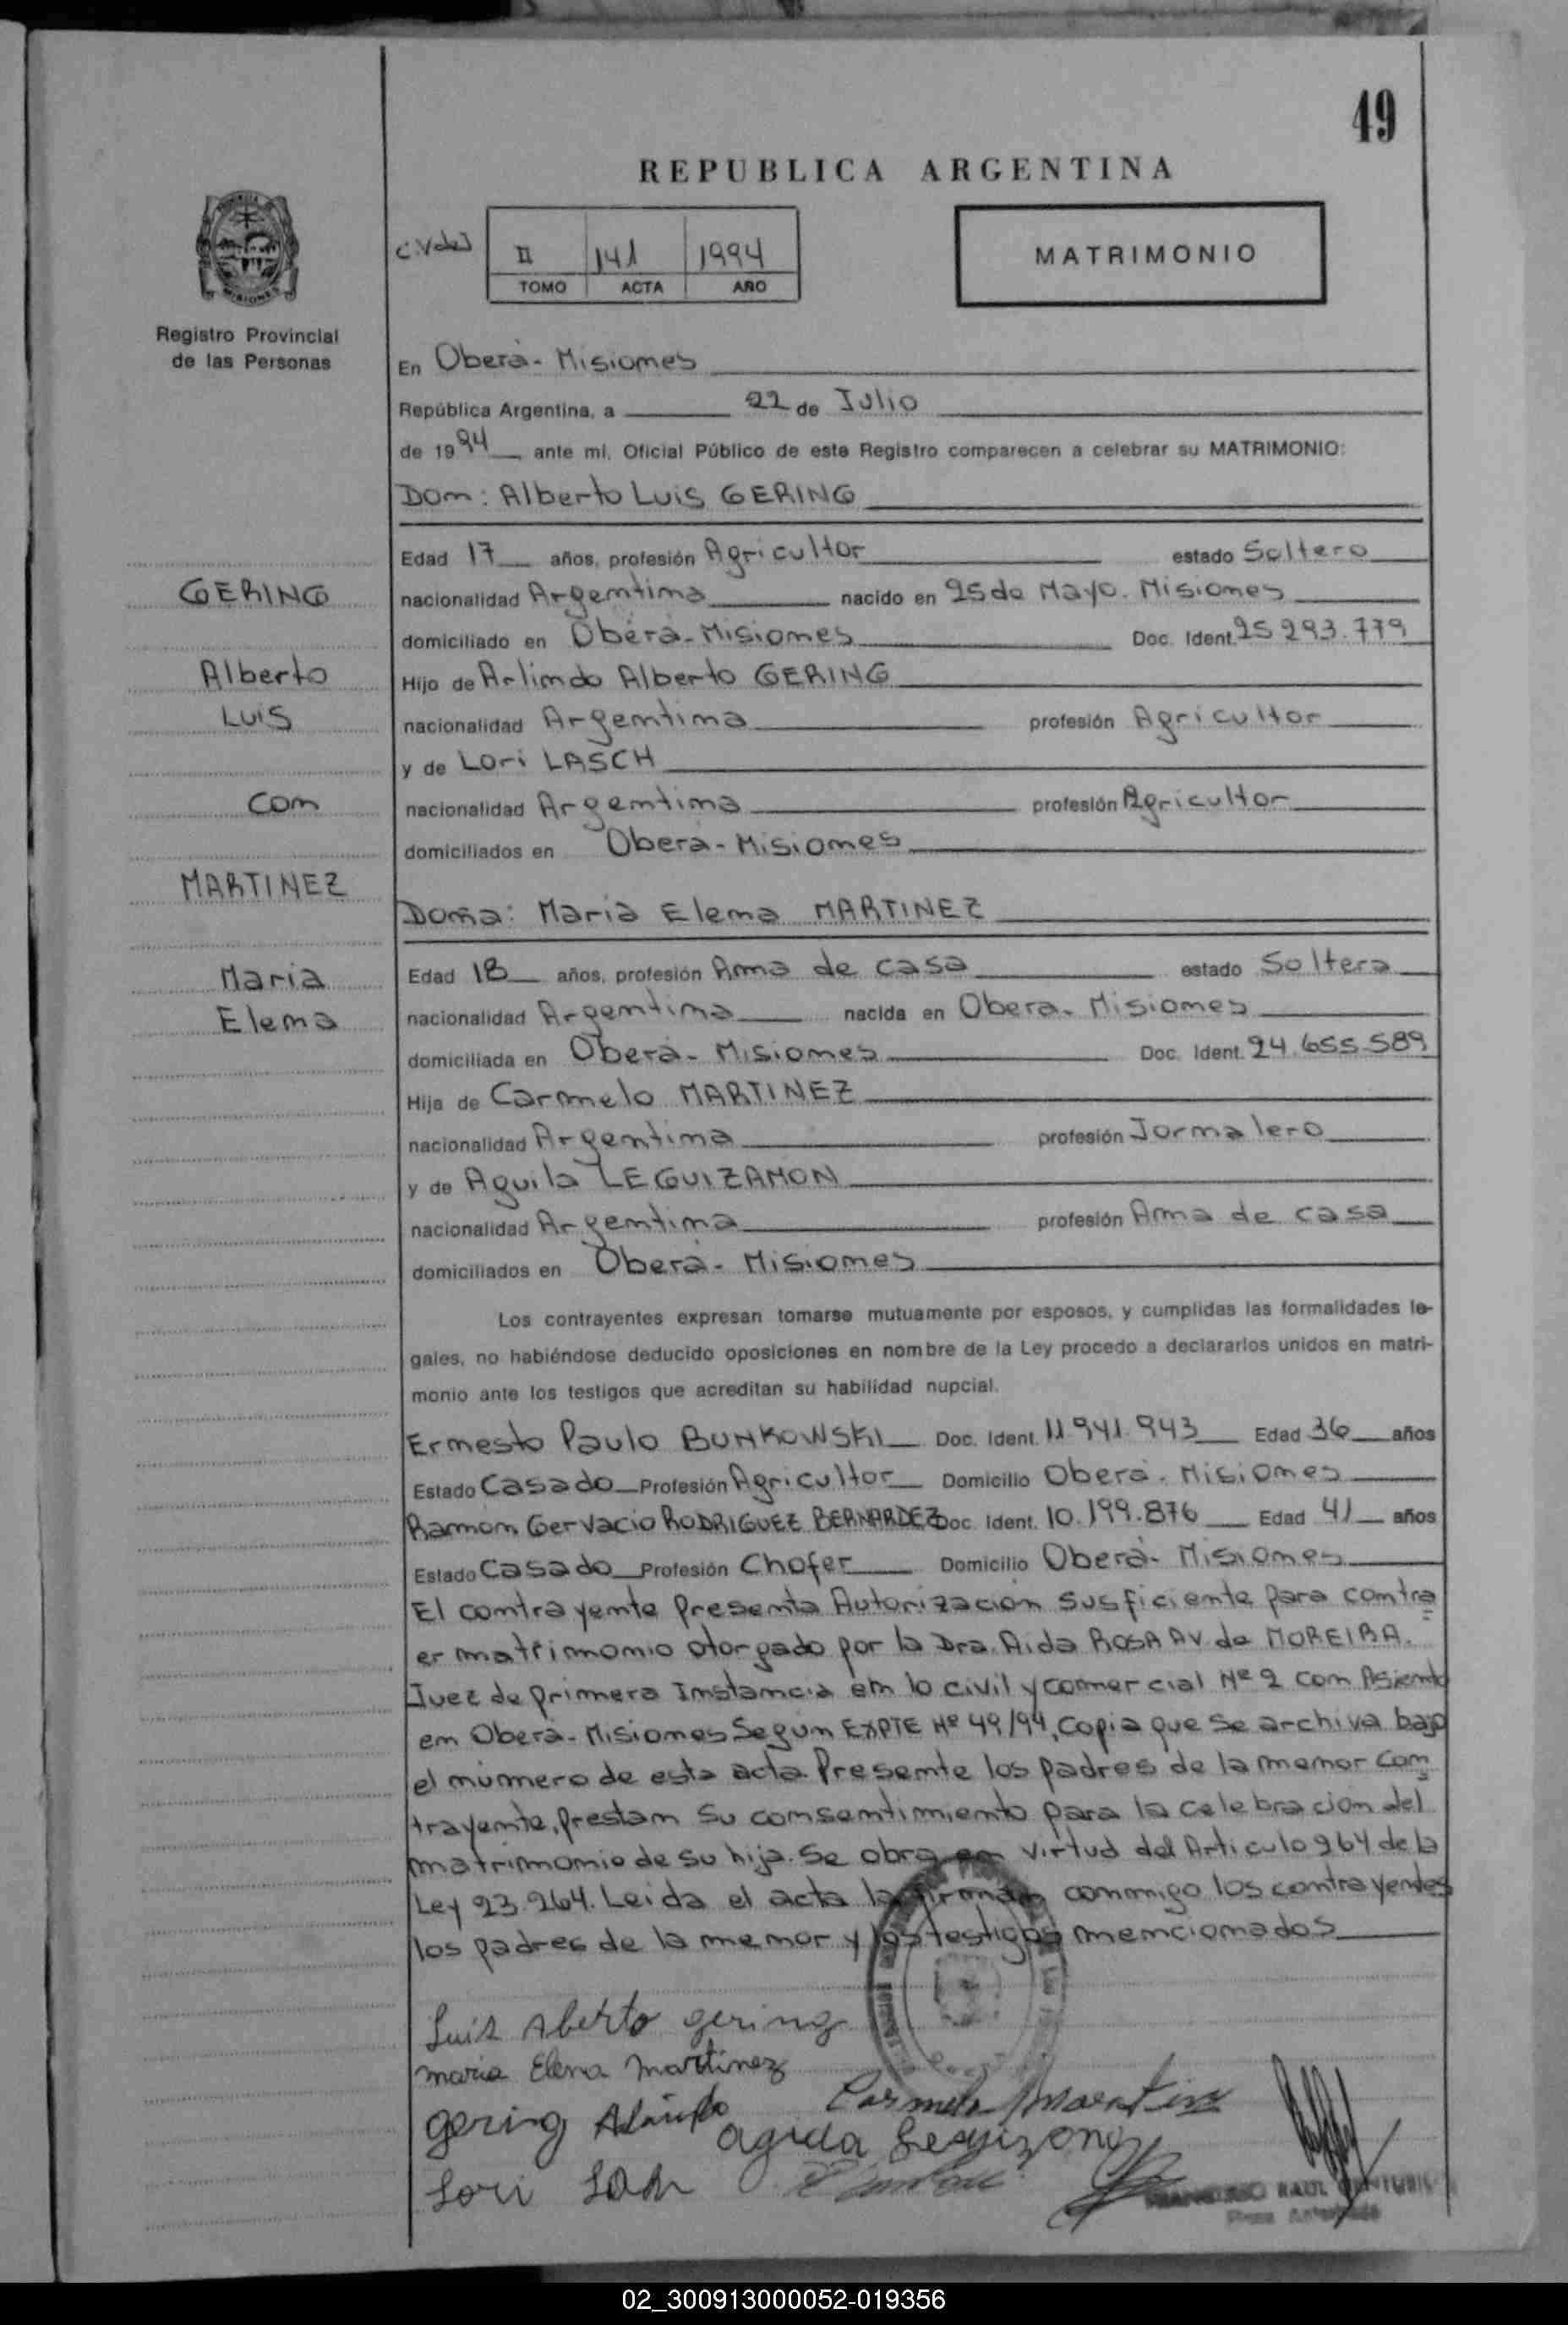 49
REPUBLICA ARGENTINA
MATRIMONIO
II 141 1994
TOMO ACTA AÑO
PROVINCIA DE MISIONES
Registro Provincial
de las Personas
En Oberá - Misiones
República Argentina, a 22 de Julio
de 1994 ante mi, Oficial Público de este Registro comparecen a celebrar su MATRIMONIO:
Don: Alberto Luis GERING
Edad 17 años, profesión Agricultor estado Soltero
GERING
nacionalidad Argentina nacido en 25 de Mayo. Misiones
domiciliado en Oberá - Misiones Doc. Ident. 25 293.779
Alberto
Hijo de Arlindo Alberto GERING
Luis
nacionalidad Argentina profesión Agricultor
y de Lori LASCH
con
nacionalidad Argentina profesión Agricultor
domiciliados en Oberá - Misiones
MARTINEZ
Doña: Maria Elena MARTINEZ
Maria
Edad 18 años, profesión Ama de casa estado Soltera
Elena
nacionalidad Argentina nacida en Oberá - Misiones
domiciliada en Oberá - Misiones Doc. Ident. 24.655.589
Hija de Carmelo MARTINEZ
nacionalidad Argentina profesión Jornalero
y de Aguila LEGUIZAMON
nacionalidad Argentina profesión Ama de casa
domiciliados en Oberá - Misiones
Los contrayentes expresan tomarse mutuamente por esposos, y cumplidas las formalidades le-
gales, no habiéndose deducido oposiciones en nombre de la Ley procedo a declararlos unidos en matri-
monio ante los testigos que acreditan su habilidad nupcial.
Ernesto Paulo BUNKOWSKI Doc. Ident. 11.941.943 Edad 36 años
Estado Casado Profesión Agricultor Domicilio Oberá - Misiones
Ramon Gervacio RODRIGUEZ BERNARDEZ Doc. Ident. 10.199.876 Edad 41 años
Estado Casado Profesión Chofer Domicilio Oberá - Misiones
El contrayente presenta Autorización susficiente para contra=
er matrimonio otorgado por la Dra. Aida ROSA AV. de MOREIRA.
Juez de primera Instancia en lo civil y comercial Nº 2 con Asiento
en Oberá - Misiones Según EXPTE Nº 49/94, Copia que se archiva bajo
el número de esta acta. Presente los padres de la menor con=
trayente, prestan su consentimiento para la celebración del
matrimonio de su hija. Se obra en virtud del Articulo 264 de la
Ley 23.264. Leida el acta la firman conmigo los contrayentes
los padres de la menor y los testigos mencionados
Luis Alberto gering
maria Elena Martinez
Carmelo Martinez
gering Arlindo
aguila Leguizamon
Lori Lasch
RAUL
02_300913000052-019356